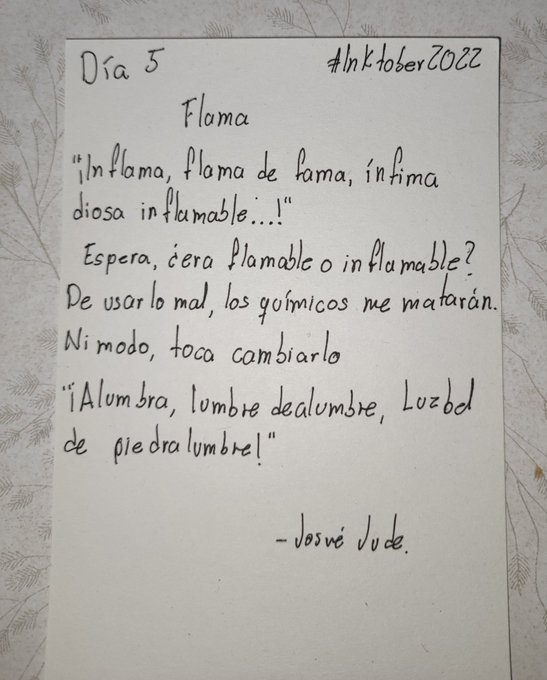 Día 5
#InKtober2022
Flama
"¡Inflama, flama de fama, ínfima
diosa inflamable...!"
Espera, ¿era flamable o inflamable?
De usarlo mal, los químicos me matarán.
Ni modo, toca cambiarlo
"¡Alumbra, lumbre dealumbre, Luzbel
de piedralumbre!"
- Josué Jude.